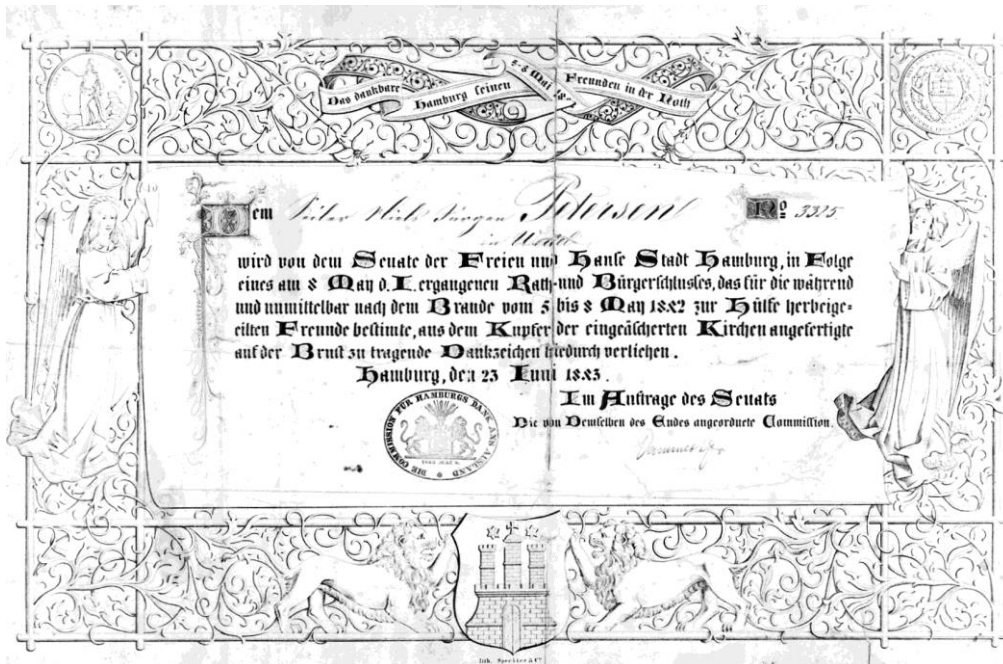 Das dankbare Hamburg seinen 5-8 Mai Freunden in der Noth
Dem Niels Jürgen Petersen No 3325
in
wird von dem Senate der Freien und Hanse Stadt Hamburg, in Folge
eines am 8 May d. I. ergangenen Rath- und Bürgerschlusses, das für die während
und unmittelbar nach dem Brande vom 5 bis 8 May 1842 zur Hülfe herbeige-
eilten Freunde bestimte, aus dem Kupfer der eingeäscherten Kirchen angefertigte
auf der Brust zu tragende Dankzeichen hiedurch verliehen.
Hamburg, den 23 Iuni 1843.
Im Auftrage des Senats
Die von Demselben des Endes angeordnete Commission.
DIE COMMISSION FÜR HAMBURGS DANK ANS AUSLAND
lith. Speckter & Co